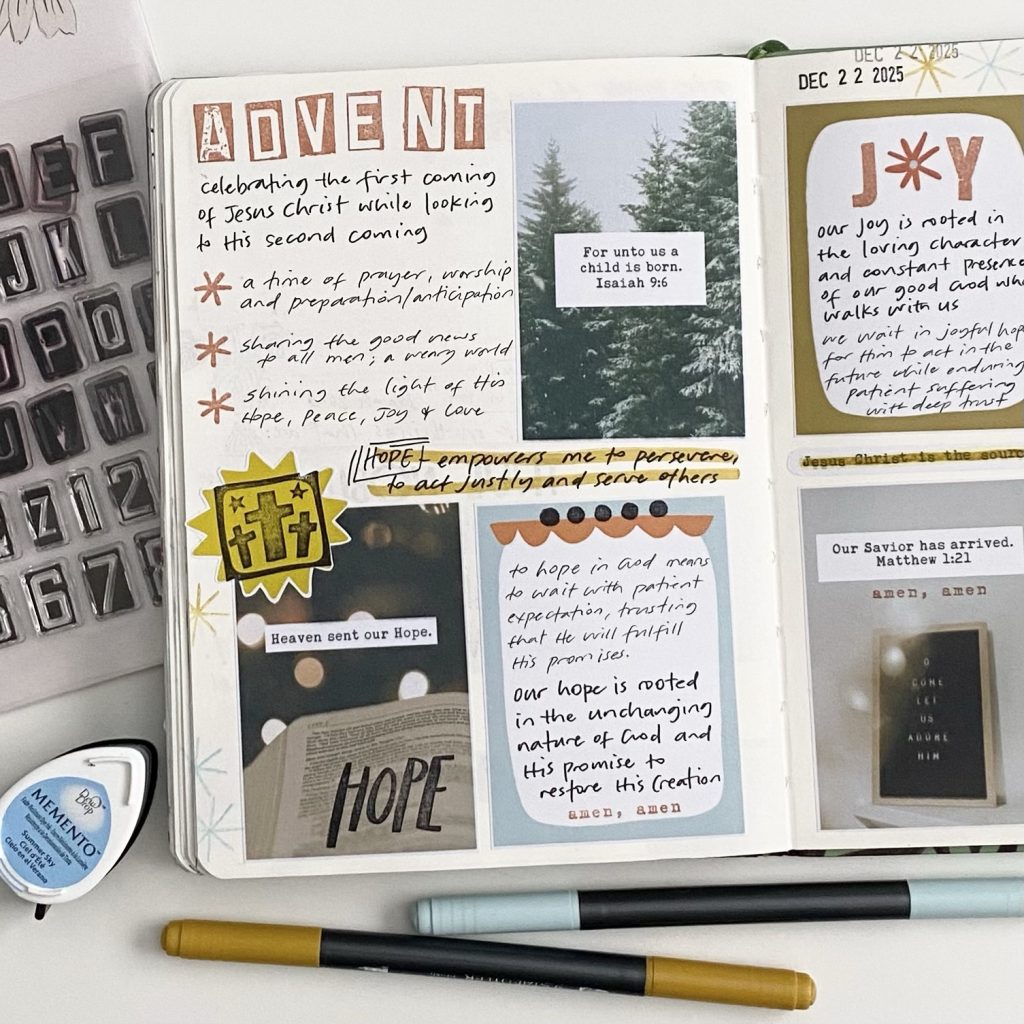 ADVENT
celebrating the first coming
of Jesus Christ while looking
to His second coming
a time of prayer, worship
and preparation/anticipation
sharing the good news
to all men; a weary world
shining the light of His
Hope, Peace, Joy & Love
For unto us a
child is born.
Isaiah 9:6
HOPE empowers me to persevere,
to act justly and serve others
Heaven sent our Hope.
HOPE
to hope in God means
to wait with patient
expectation, trusting
that He will fulfill
His promises.
our hope is rooted
in the unchanging
nature of God and
His promise to
restore His Creation
amen, amen
DEC 22 2025
DEC 22 2025
JOY
our joy is rooted in
the loving character
and constant presence
of our good God who
walks with us
we wait in joyful hope
for Him to act in the
future while enduring
patient suffering
with deep trust
Jesus Christ is the sourc
Our Savior has arrived.
Matthew 1:21
amen, amen
O
COME
LET
US
ADORE
HIM
EF
JKL
OPQ
W
Z12
67
Dew
Drop
MEMENTO™
Summer Sky
Ciel d'Été
Cielo en el Verano